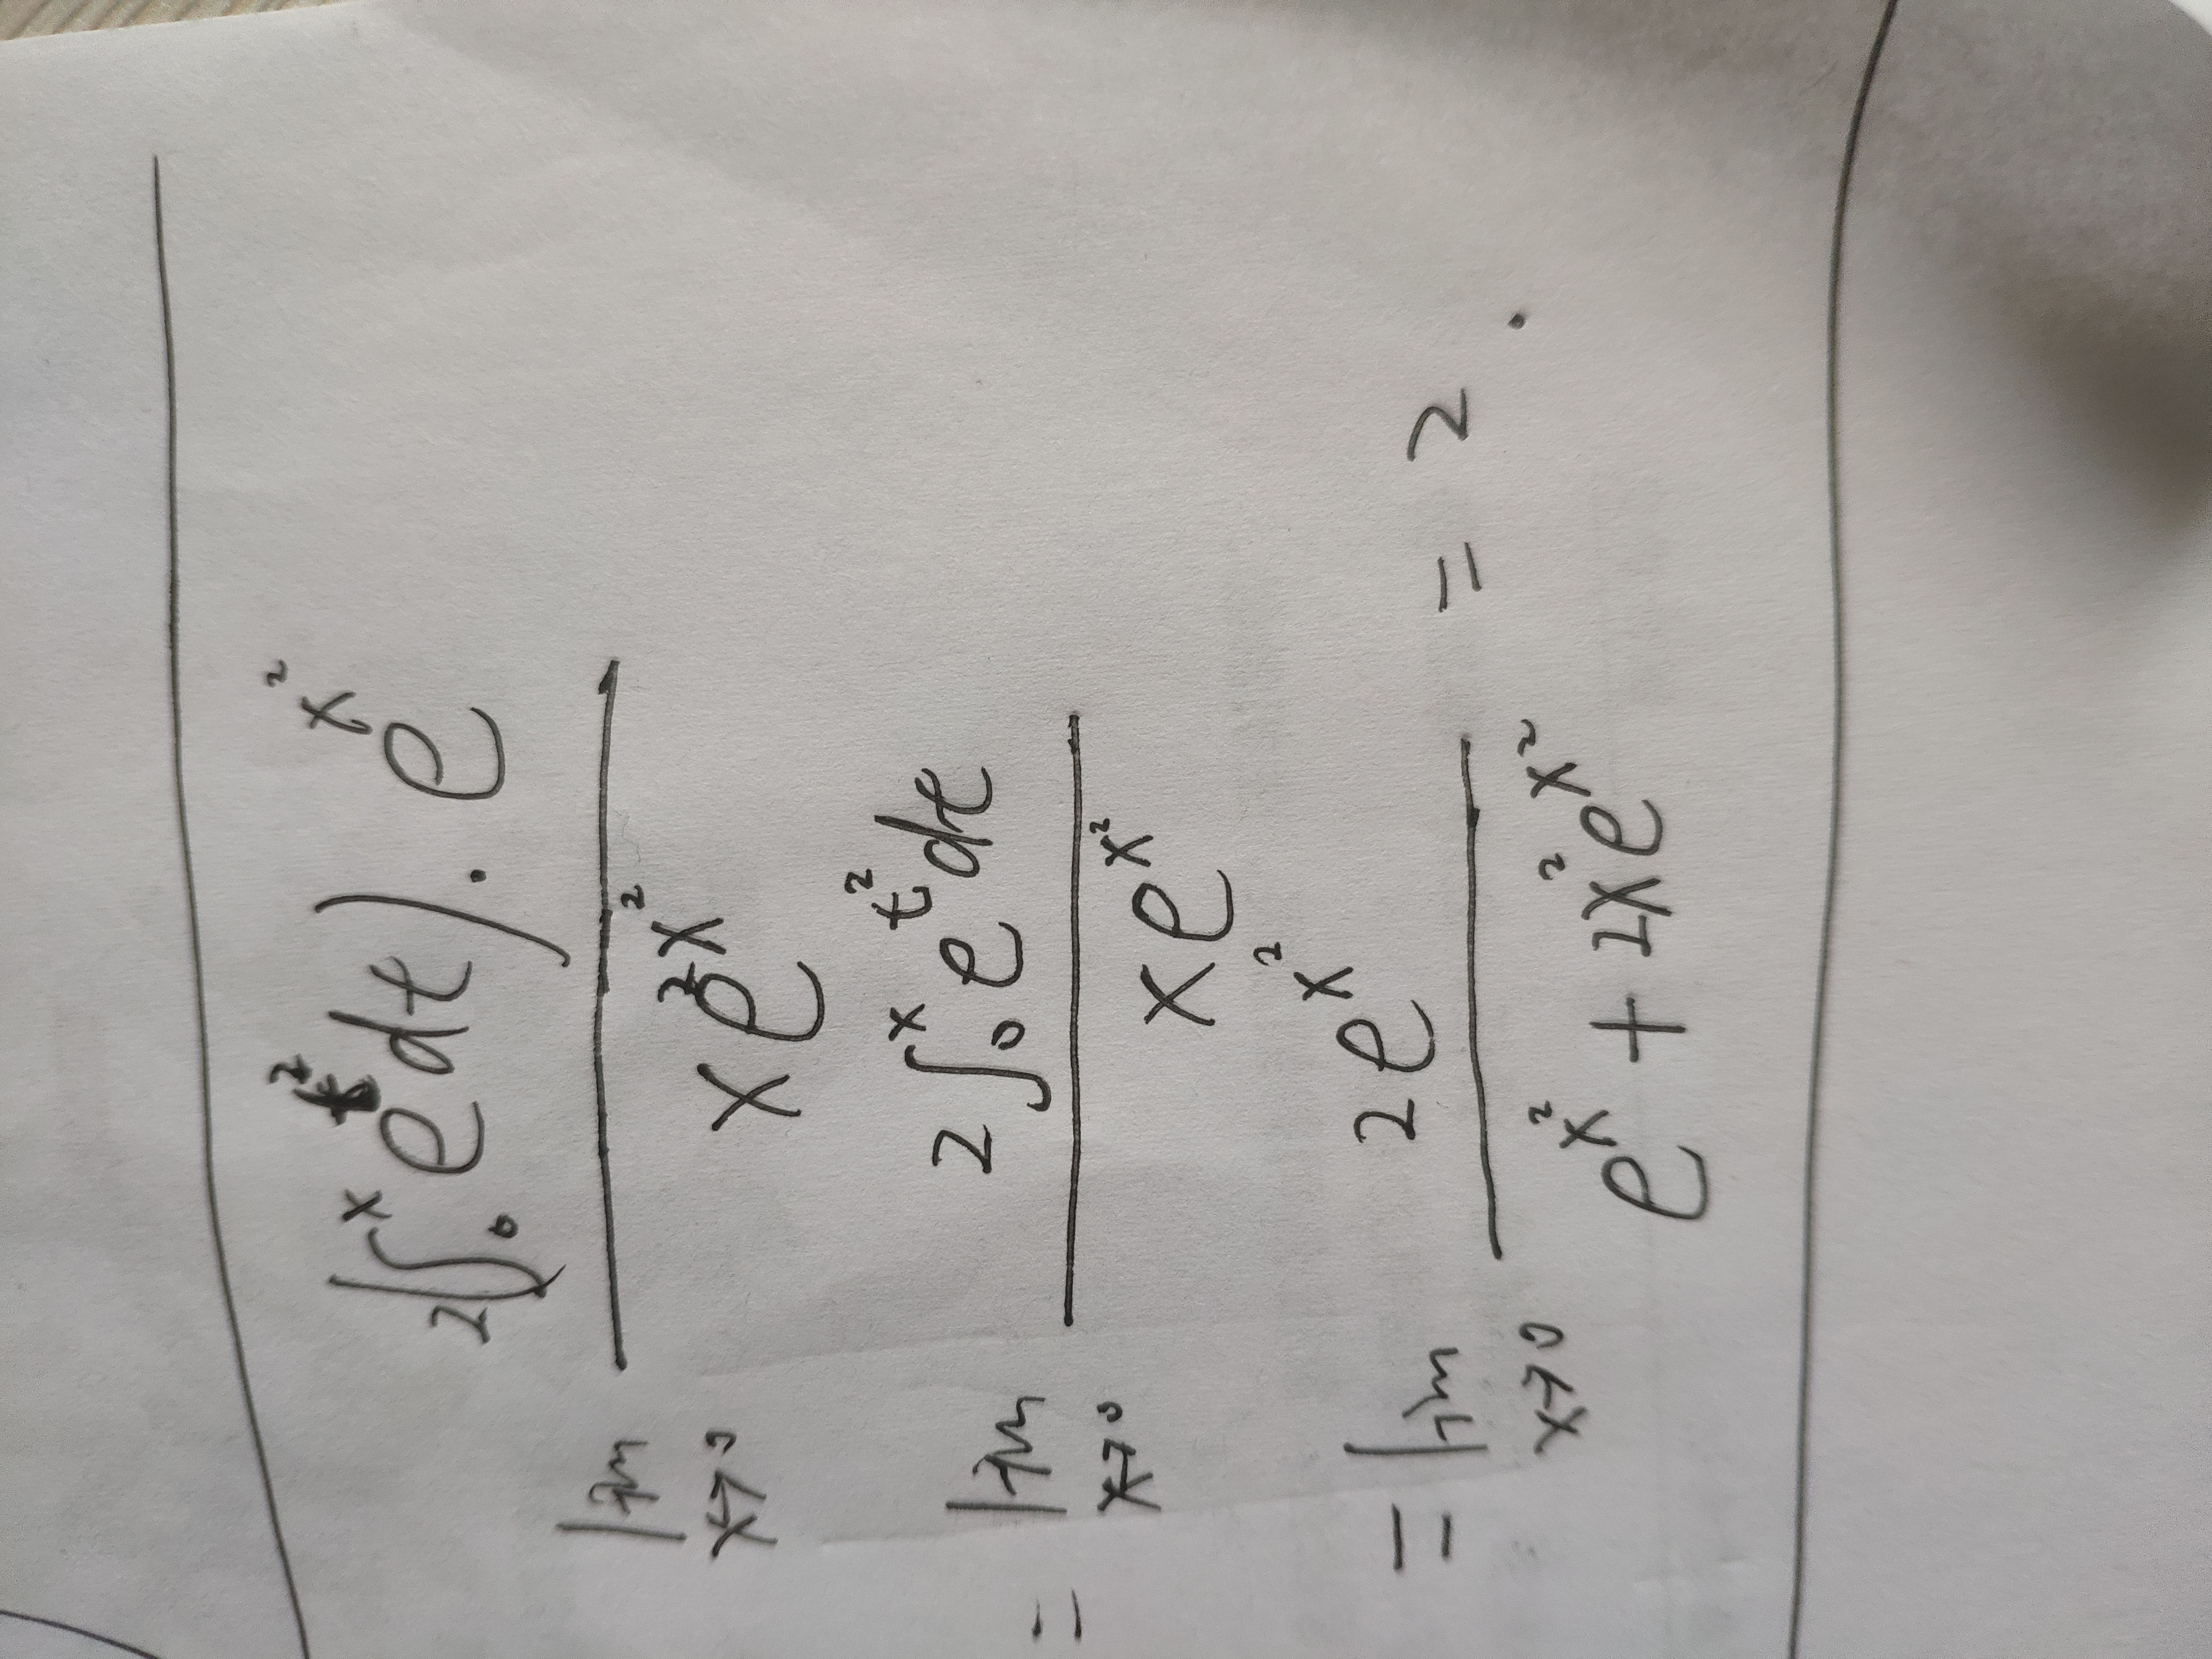 lim x→0 2(∫₀ˣ e^{t²}dt)·e^{x²} / xe^{2x²}
= lim x→0 2∫₀ˣ e^{t²}dt / xe^{x²}
= lim x→0 2e^{x²} / e^{x²} + 2x²e^{x²} = 2.